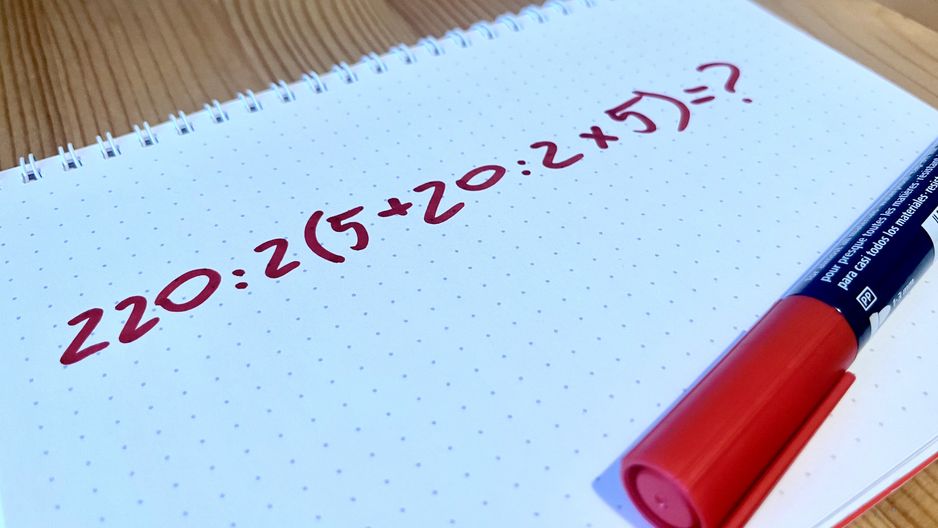 220:2(5+20:2×5)=?
pour presque toutes les matières · résistant
para casi todos los materiales · resis
PP